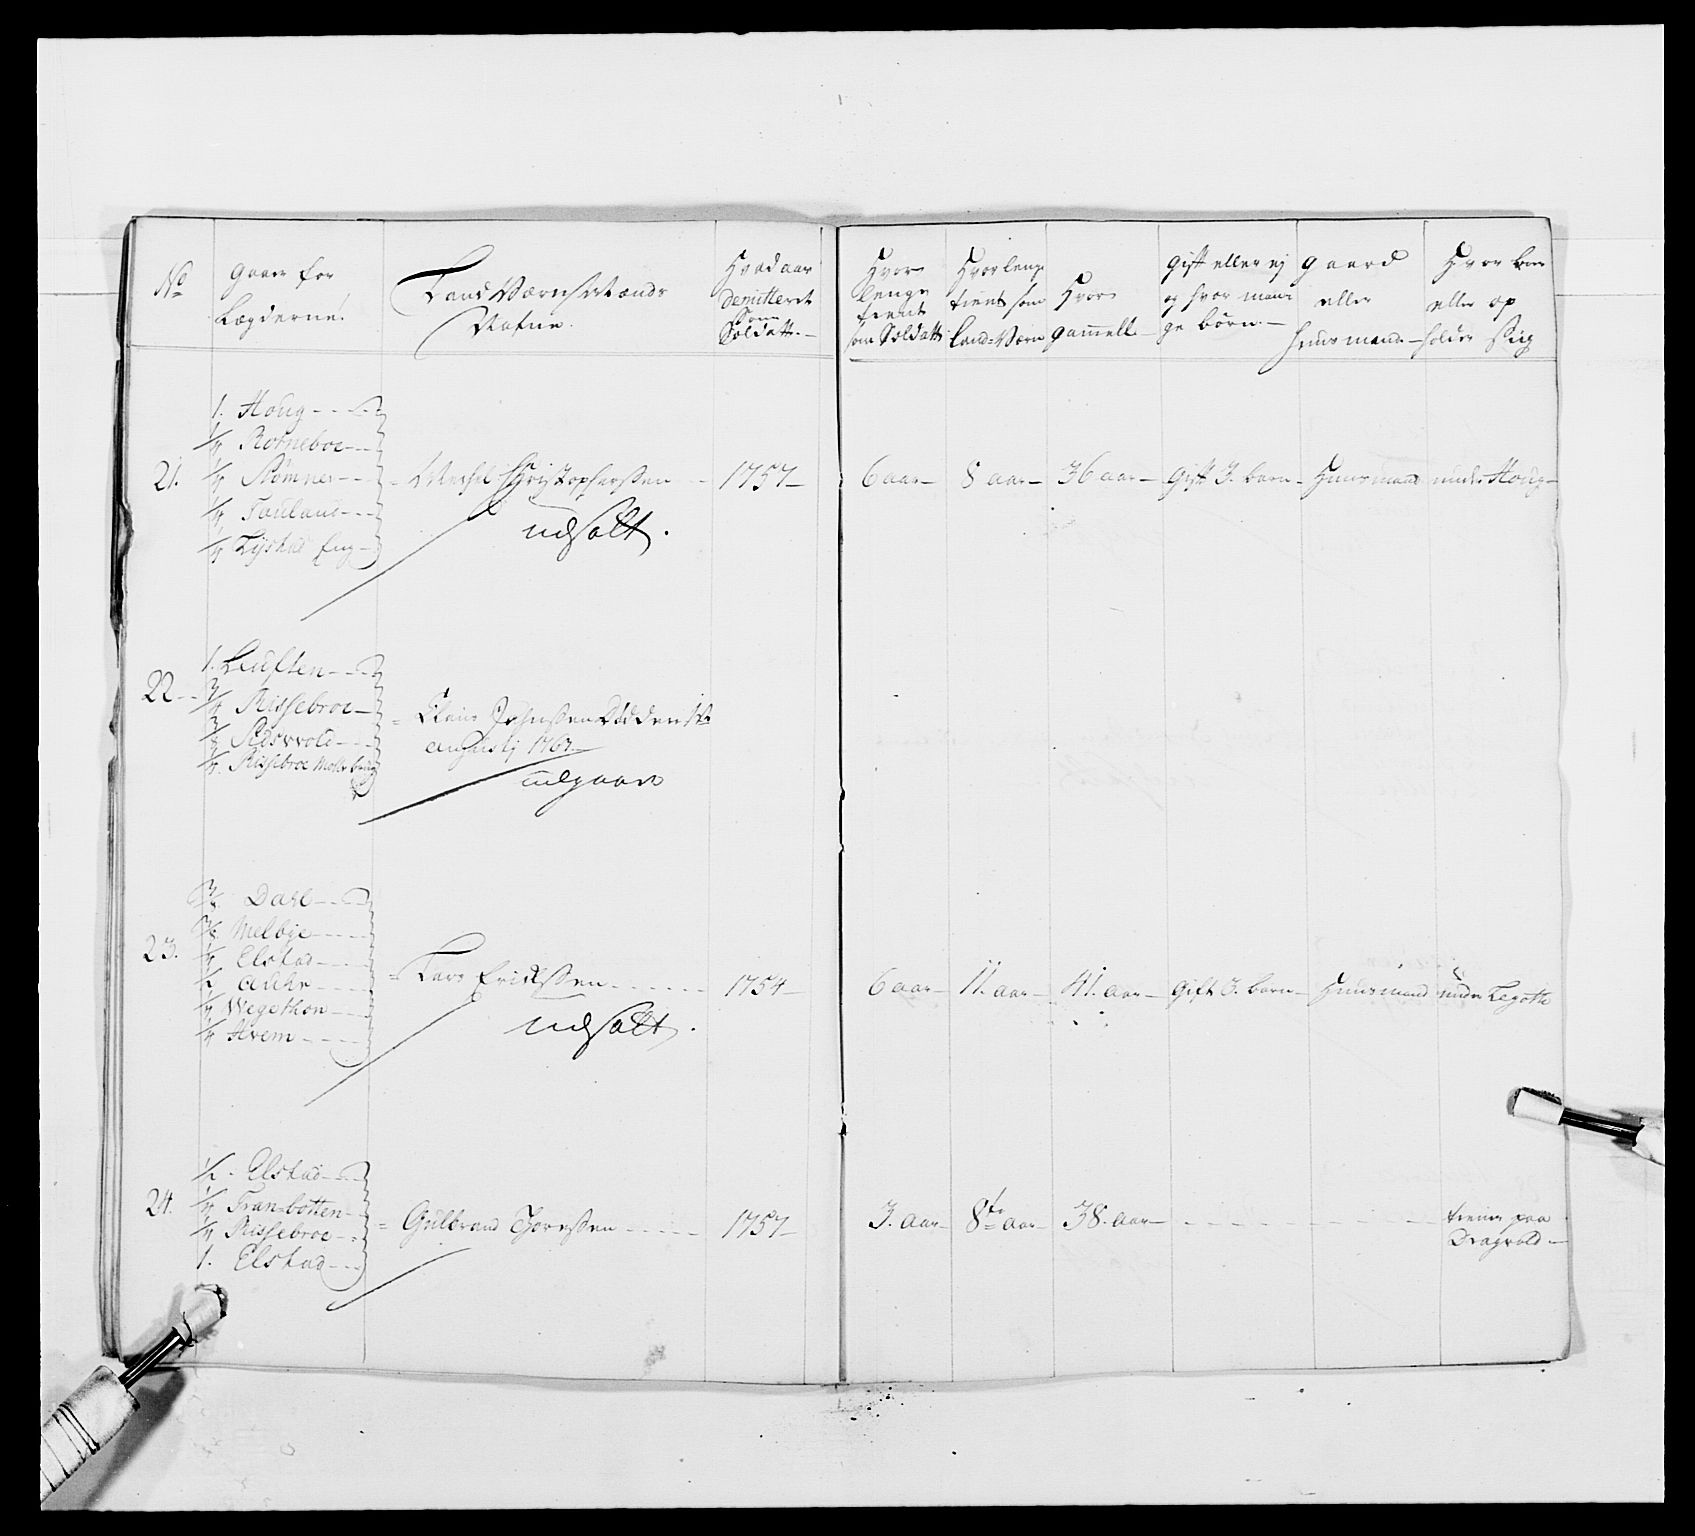 No
Gaarer for
Lægderne.
Land Værns Mænds
Nafne.
Hvad aar
demitteret
som
Soldatt.
Hvor
lenge
tient
som Soldatt
Hvor lenge
tient som
Land-Værn
Hvor
gammell
Gift eller ej
og hvor man-
ge börn.
Gaard
eller
Huusmand
Hvor boer
eller op
holder siig
21.
1. Houg
1/4 Rotneboe
1/4 Stömner
1/4
1/4 Lÿstad Eng
Michel Christophersen
udsatt.
1757
6 aar
8 aar
36 aar
Gift 3. barn
Huusmand
under Houg
22
1. Kuften
3/4 Rissebroe
Eidsvold
Rissebroe
Clаus Johnsen Död den
augustj 1767
udgaar
23.
Dahl
Melbye
1/4 Elstad
1/2
1/4 Wegethon
1/4 Hvem
Lars Erichsen
udsatt.
1754
6 aar
11. aar
41. aar
Gift 3. barn
Huusmand
under
24.
1/2 Elstad
1/4 Tranbotten
1/4 Rissebroe
1. Elstad
Gulbrand Thoresen
1757
3. aar
8te aar
38. aar
tiener paa
Dragvold